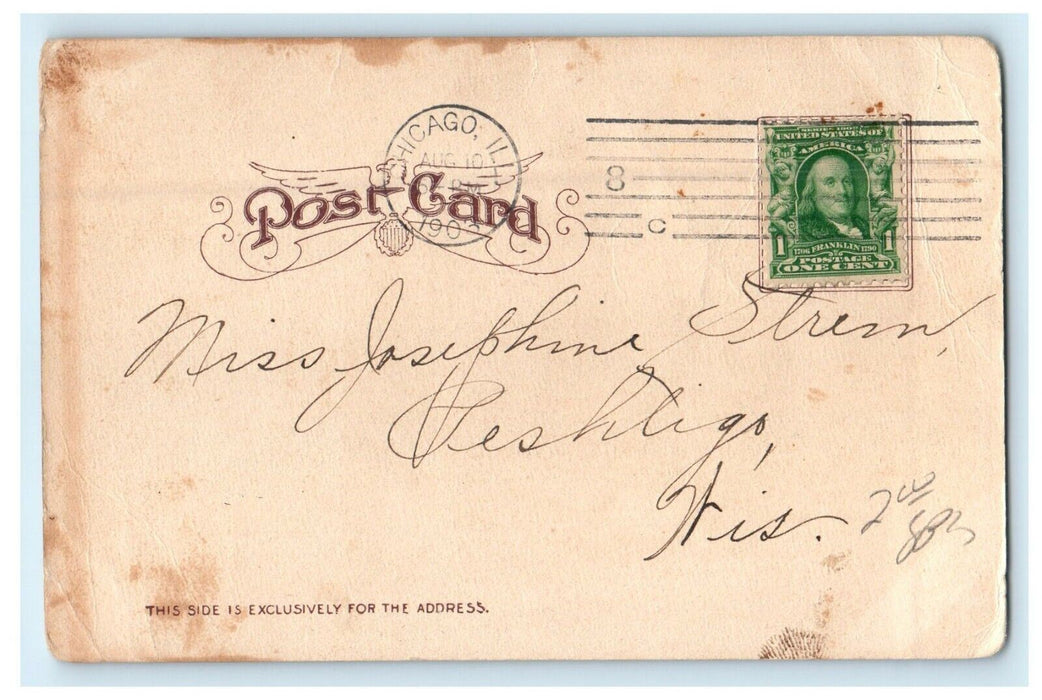 CHICAGO, ILL.
AUG 10
PM
190
8
C
Post Card
SERIES 1902
UNITED STATES OF
AMERICA
1706 FRANKLIN 1790
1 POSTAGE 1
ONE CENT
Miss Josephine Strem,
Peshtigo,
Wis.
2 00
THIS SIDE IS EXCLUSIVELY FOR THE ADDRESS.